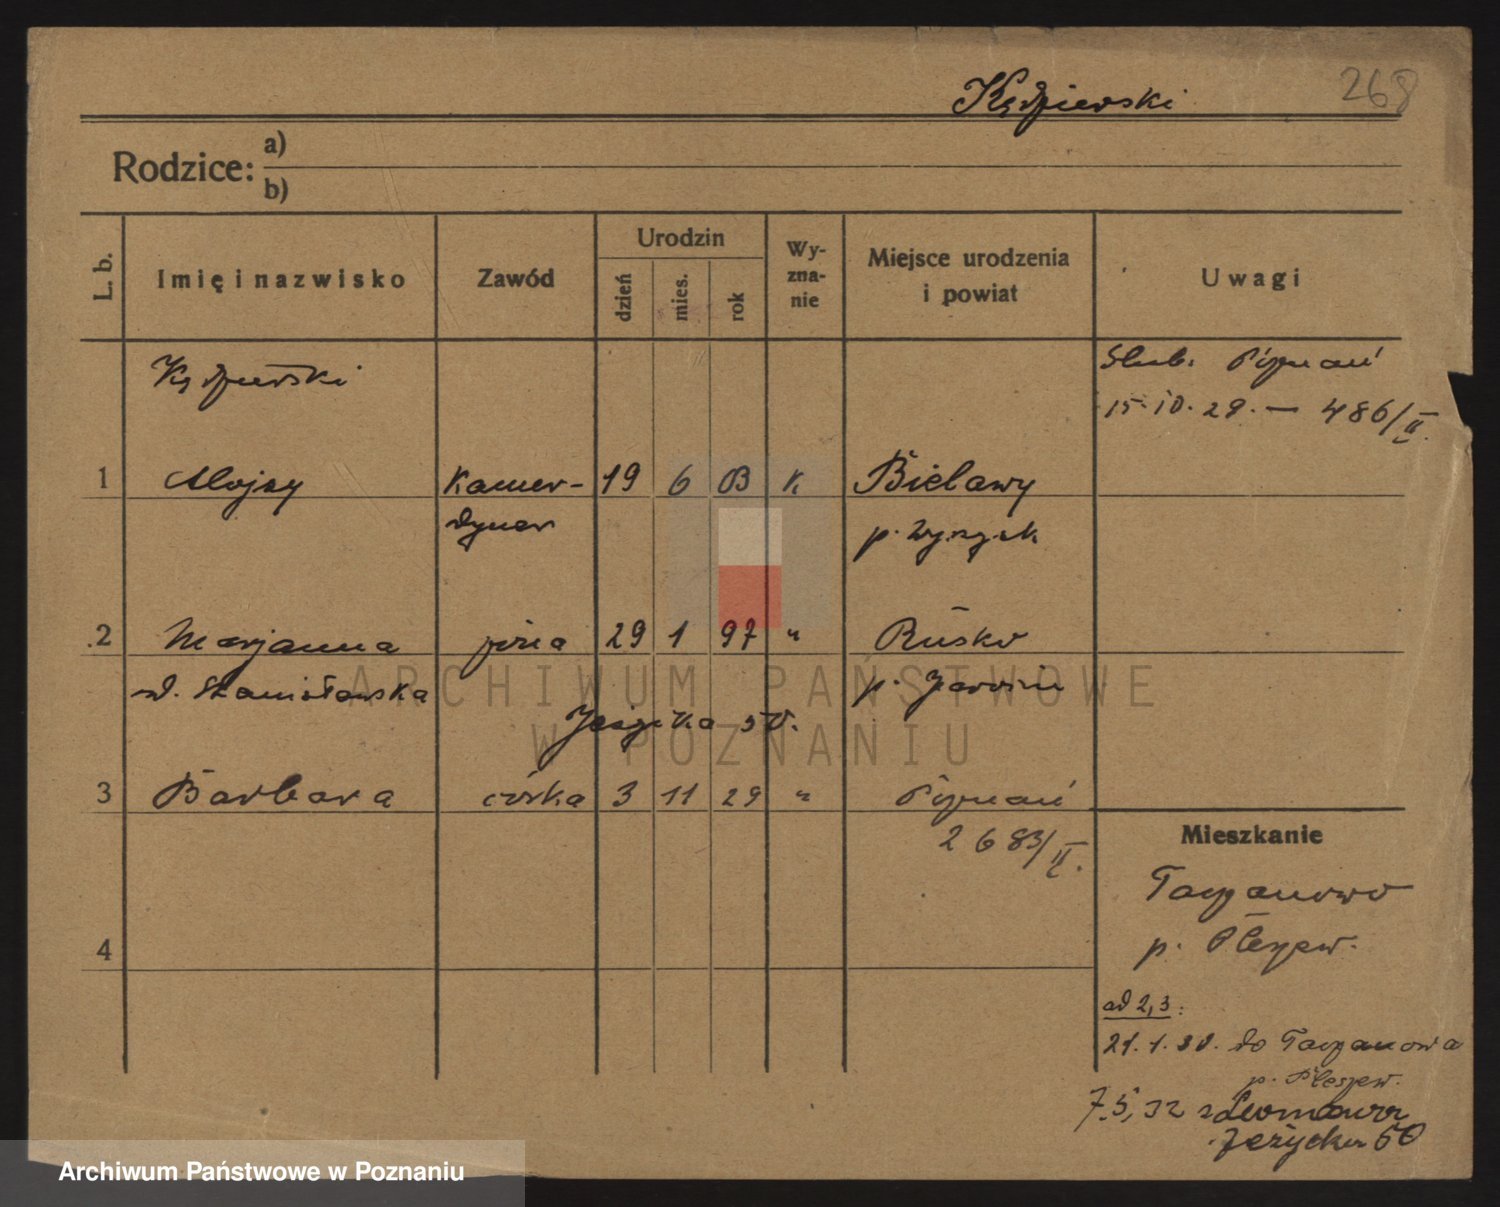 Kędzierski 268
Rodzice: a)
b)
L. b.
Imię i nazwisko
Zawód
Urodzin
dzień
mies.
rok
Wy-
zna-
nie
Miejsce urodzenia
i powiat
Uwagi
Kędzierski
Ślub. Poznań
15.10.29. — 486/II.
1 Alojzy Kamer- 19 6 03 k. Bielawy
dyner p. Wyrzysk
2 Marjanna żona 29 1 97 " Rusko
Stanisławska p. Jarocin
Jeżycka 50.
3 Barbara córka 3 11 29 " Poznań
2683/II.
Mieszkanie
Taczanowo
p. Pleszew.
4
ad 2,3.
21.1.30. do Taczanowa
p. Pleszew.
7.5.32 z
Jeżycka 50
ARCHIWUM PAŃSTWOWE
W POZNANIU
Archiwum Państwowe w Poznaniu